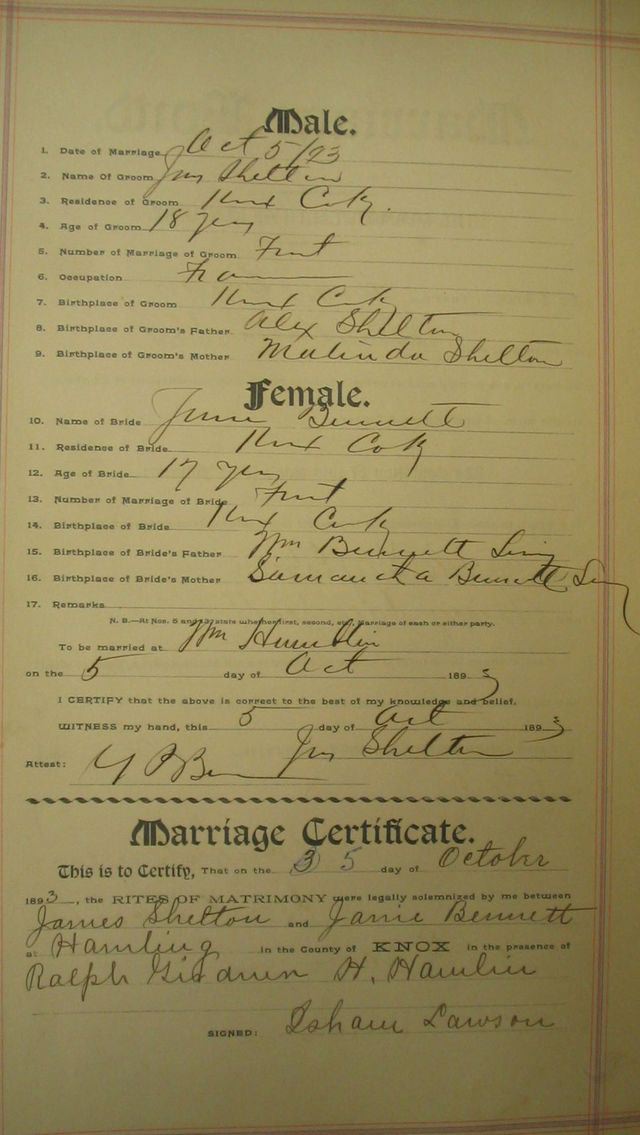 Male.
1. Date of Marriage Oct 5/93
2. Name Of Groom Jas Shelton
3. Residence of Groom Knox Co Ky.
4. Age of Groom 18 years
5. Number of Marriage of Groom First
6. Occupation Farmer
7. Birthplace of Groom Knox Co Ky
8. Birthplace of Groom's Father Alex Shelton
9. Birthplace of Groom's Mother Malinda Shelton
Female.
10. Name of Bride Bennett
11. Residence of Bride Knox Co Ky
12. Age of Bride 17 years
13. Number of Marriage of Bride First
14. Birthplace of Bride Knox Co Ky
15. Birthplace of Bride's Father Wm Bennett Living
16. Birthplace of Bride's Mother Samantha Bennett
17. Remarks
N. B.—At Nos. 5 and 13, state whether first, second, etc., Marriage of each or either party.
To be married at Wm Hamblin
on the 5 day of Oct 1893
I CERTIFY that the above is correct to the best of my knowledge and belief.
WITNESS my hand, this 5 day of Oct 1893
Jas Shelton
Attest:
Marriage Certificate.
This is to Certify, That on the 5 day of October
1893, the RITES OF MATRIMONY were legally solemnized by me between
James Shelton and Janie Bennett
at Hamlins in the County of KNOX in the presence of
Ralph H. Hamlin
SIGNED: Isham Lawson